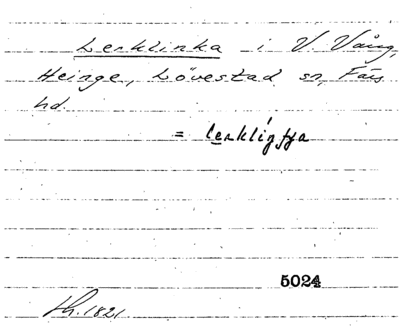 Lerklinka i V. Vång,
Heinge, Lövestad sn, Färs
hd.
= lerklígja
5024
Lh. 1821.